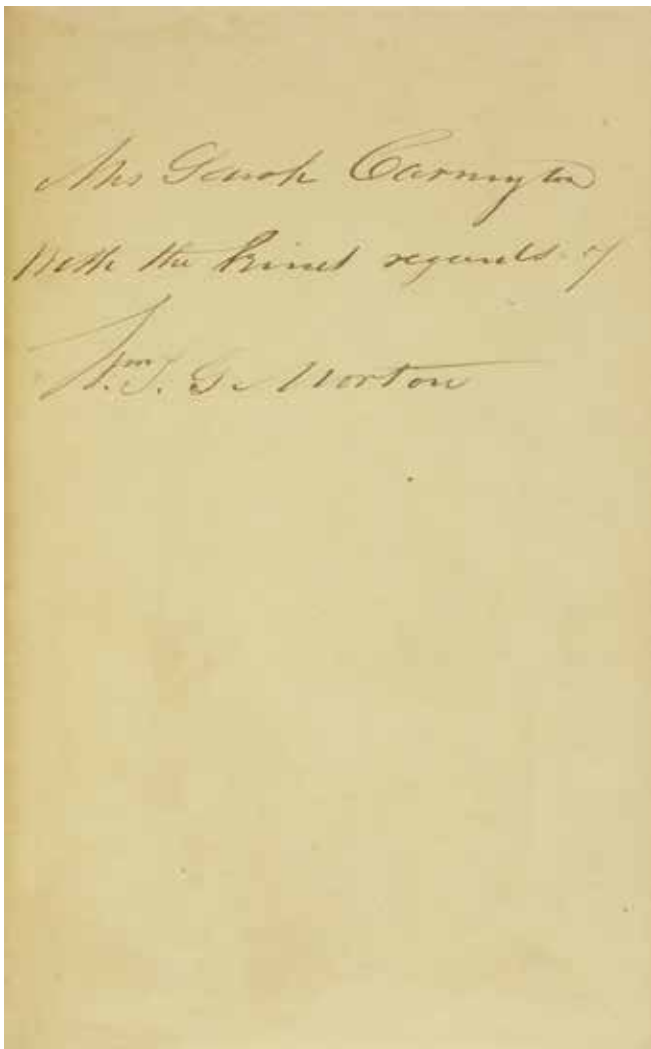 Mrs Carrington
With the kind regards of
Wm. T. G. Morton